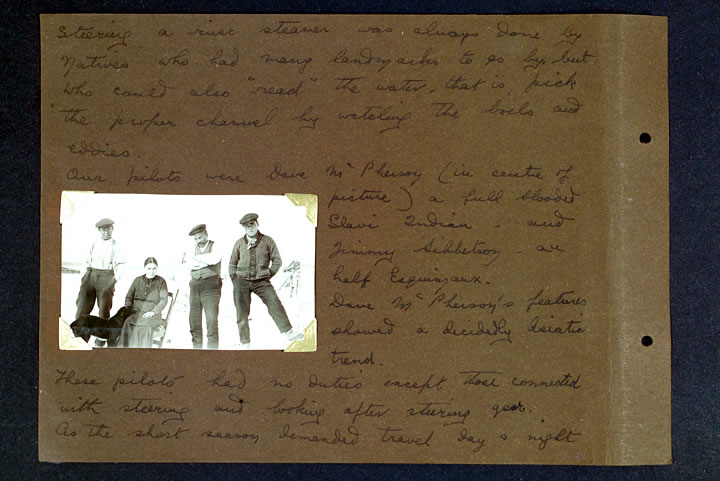 Steering a river steamer was always done by
Natives who had many landmarks to go by, but
who could also "read" the water, that is, pick
the proper channel by watching the boils and
eddies.
Our pilots were Dave McPherson (in centre of
picture) a full blooded
Slavi Indian - and
Jimmy Sibbetson - an
half Esquimaux.
Dave McPherson's features
showed a decidedly Asiatic
trend.
These pilots had no duties except those connected
with steering and looking after steering gear.
As the short season demanded travel day & night